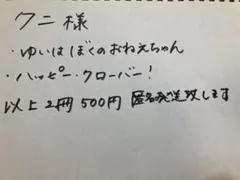 クニ様
・ゆいはぼくのおねえちゃん
・ハッピー・クローバー!
以上2冊500円 匿名発送致します